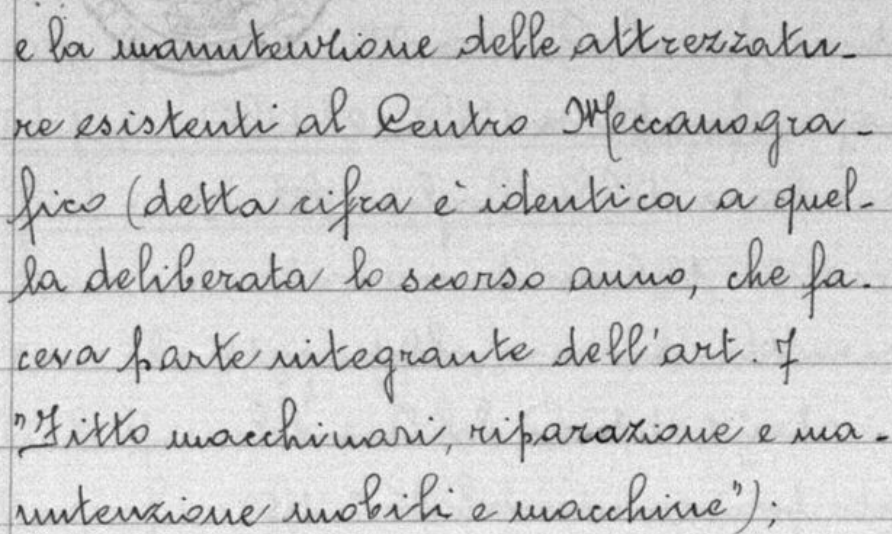 e la manutenzione delle attrezzatu-
re esistenti al Centro Meccanogra-
fico (detta cifra è identica a quel-
la deliberata lo scorso anno, che fa-
ceva parte integrante dell'art. 7
"Fitto macchinari, riparazione e ma-
nutenzione mobili e macchine");